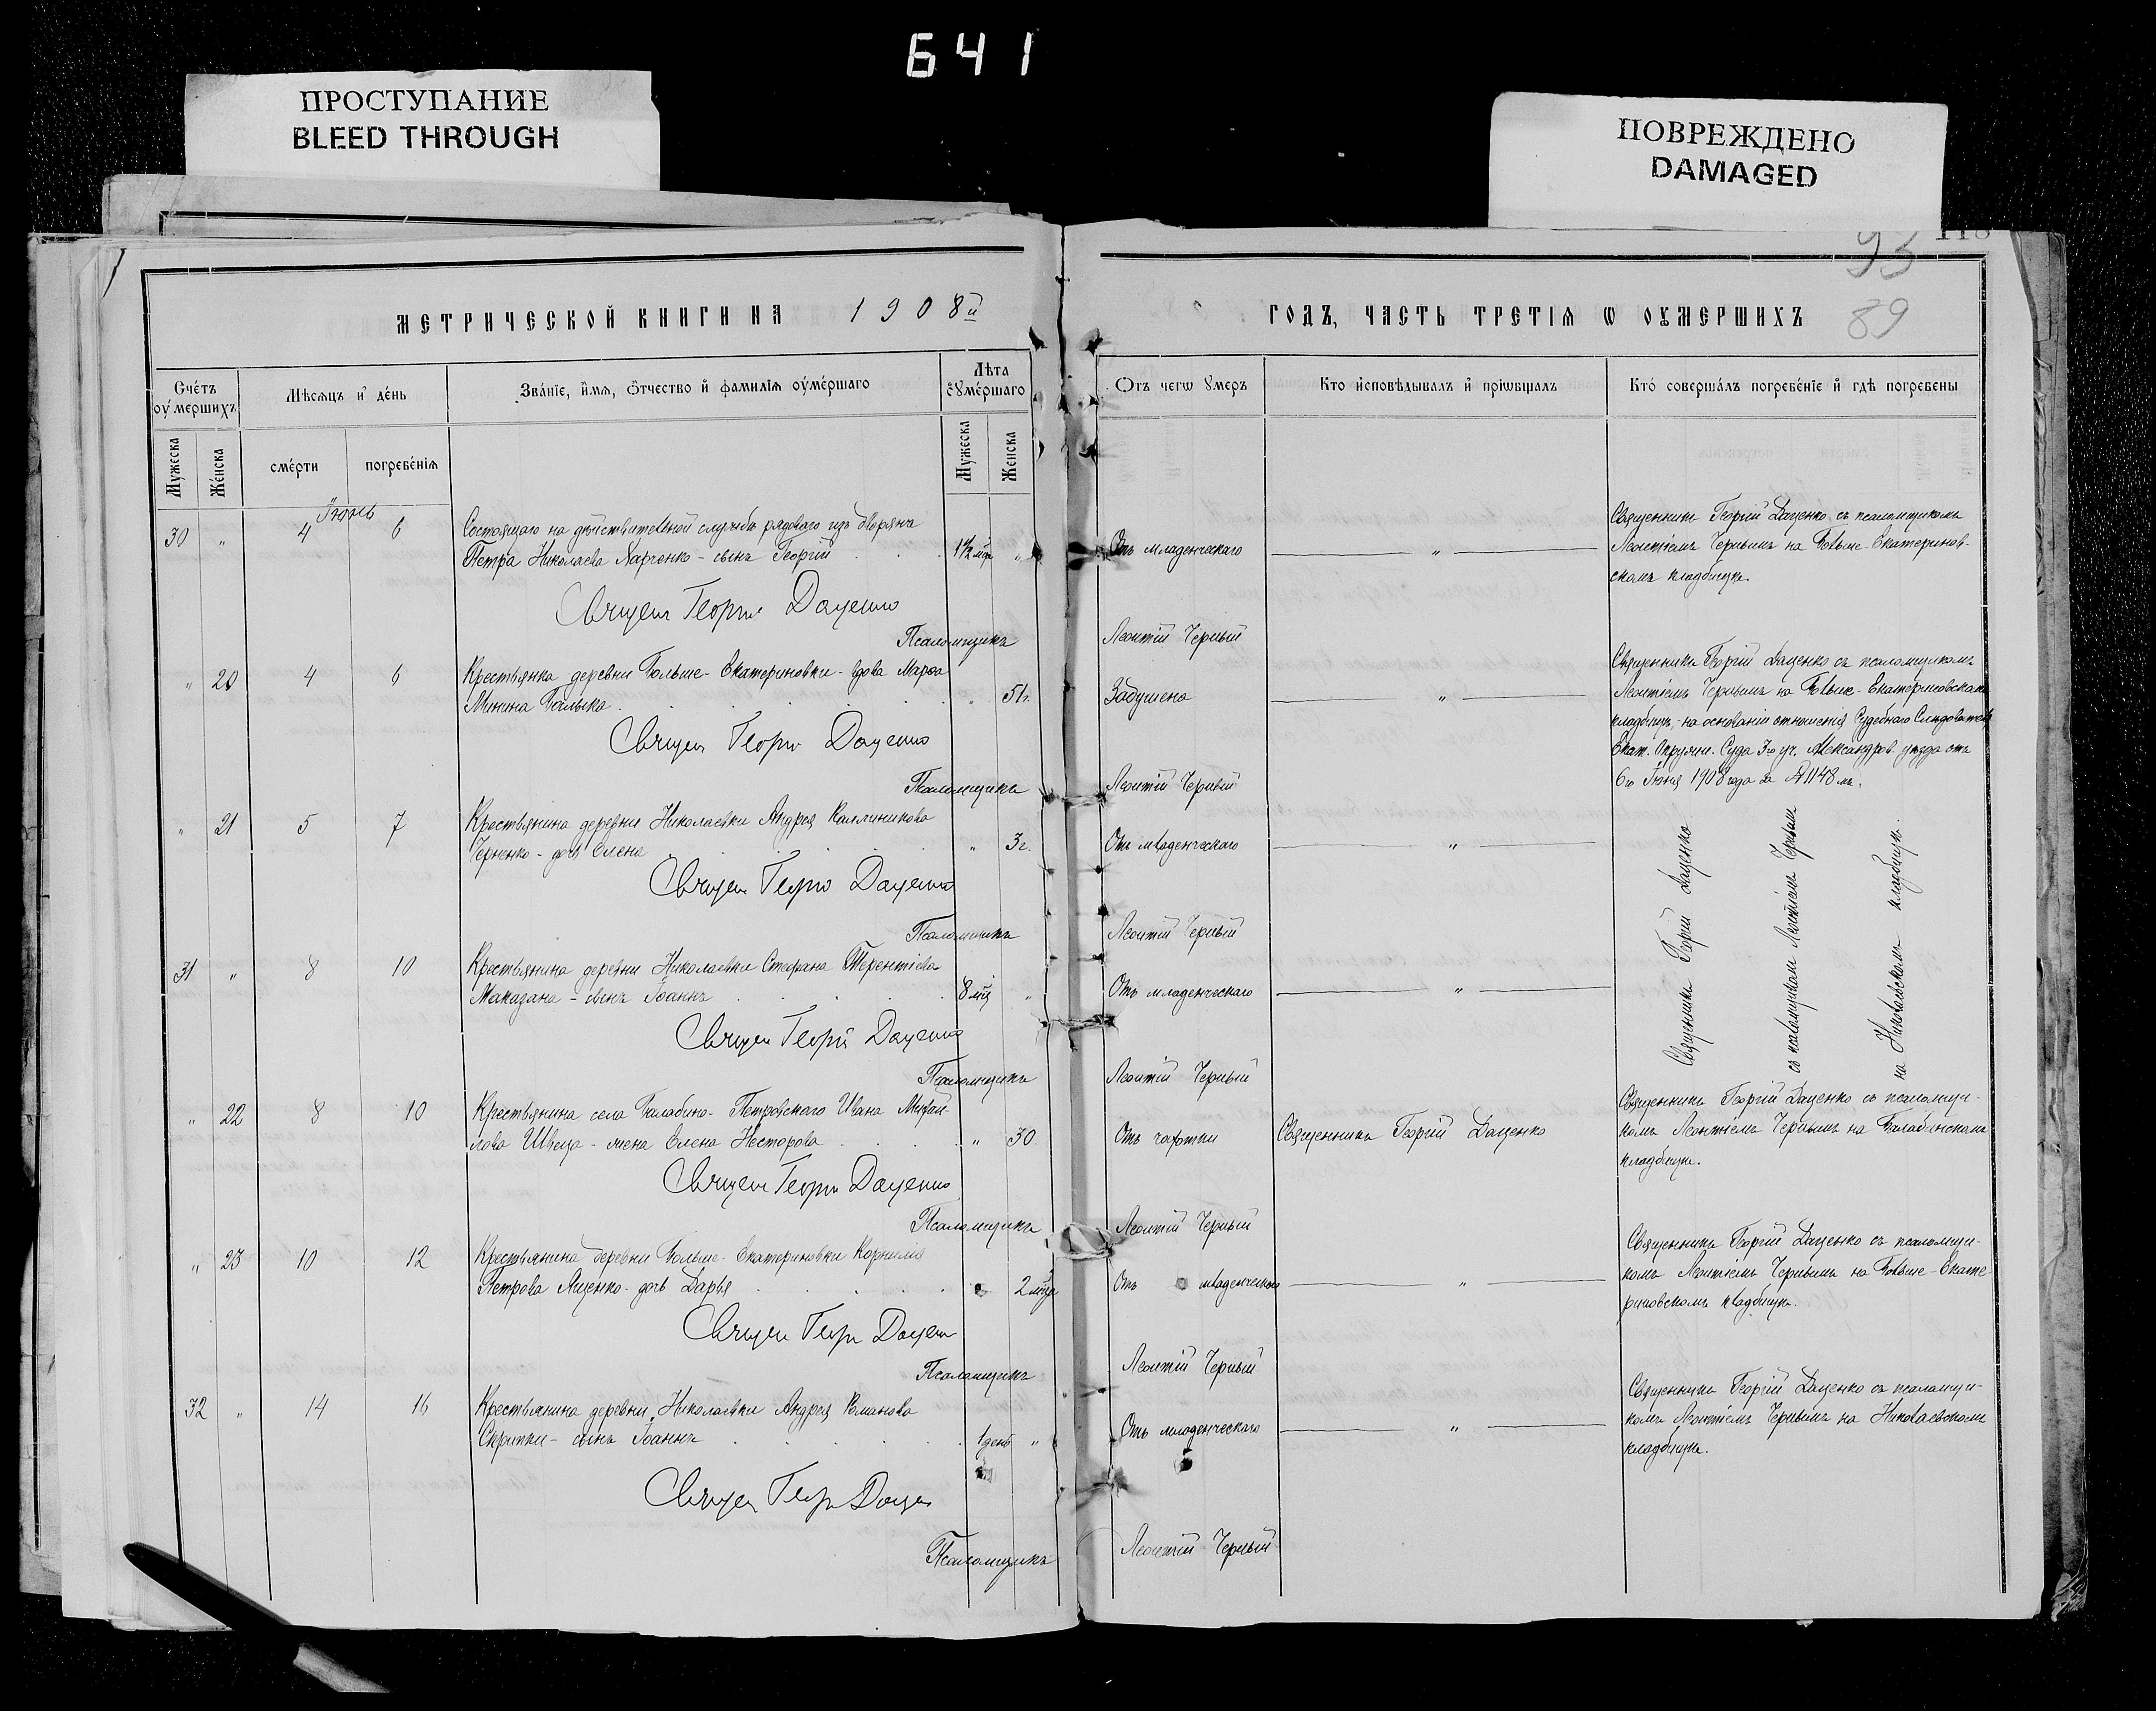 641
ПРОСТУПАНИЕ
BLEED THROUGH
ПОВРЕЖДЕНО
DAMAGED
93 118
МЕТРИЧЕСКОЙ КНИГИ НА 1908й
ГОДЪ, ЧАСТЬ ТРЕТІЯ Ѡ ОУМЕРШИХЪ 89
Счетъ оумершихъ
Мѣсяцъ и день
Званіе, имя, отчество и фамилія оумершаго
Лѣта оумершаго
Отъ чегѡ умеръ
Кто исповѣдывалъ и пріѡбщалъ
Кто совершалъ погребеніе и гдѣ погребены
Мужеска
Женска
смерти
погребенія
Мужеска
Женска
Іюнь
30 " 4 6 Состоящаго на дѣйствительной службѣ рядового изъ дворянъ
Петра Николаева Харченко - сынъ Георгій 1½ мѣс "
Отъ младенческаго "
Священникъ Георгій Даценко съ псаломщикомъ
Леонтіемъ Чернымъ на Больше-Екатеринов-
скомъ кладбищѣ.
Священ Георгій Даценко
Псаломщикъ Леонтій Черный
" 20 4 6 Крестьянка деревни Больше-Екатериновки - вдова Марфа
Минина Балыка " 51 г.
Задушена "
Священникъ Георгій Даценко съ псаломщикомъ
Леонтіемъ Чернымъ на Больше-Екатериновскомъ
кладбищѣ, на основаніи отношенія Судебнаго Слѣдователя
Екат. Окружн. Суда 3го уч. Александров. уѣзда отъ
6го Іюня 1908 года за № 1148 мъ.
Священ Георгій Даценко
Псаломщикъ Леонтій Черный
" 21 5 7 Крестьянина деревни Николаевки Андрея Каллиникова
Черненко - дочь Елена " 3 г.
Отъ младенческаго "
Священникъ Георгій Даценко
съ псаломщикомъ Леонтіемъ Чернымъ
на Николаевскомъ кладбищѣ.
Священ Георгій Даценко
Псаломщикъ Леонтій Черный
31 " 8 10 Крестьянина деревни Николаевки Стефана Терентіева
Маказана - сынъ Іоаннъ 8 мѣс "
Отъ младенческаго "
Священ Георгій Даценко
Псаломщикъ Леонтій Черный
" 22 8 10 Крестьянина села Балабино-Петровскаго Ивана Михай-
лова Швеца - жена Елена Несторова " 30
Отъ чахотки Священникъ Георгій Даценко
Священникъ Георгій Даценко съ псаломщи-
комъ Леонтіемъ Чернымъ на Балабинскомъ
кладбищѣ.
Священ Георгій Даценко
Псаломщикъ Леонтій Черный
" 23 10 12 Крестьянина деревни Больше-Екатериновки Корнилія
Петрова Яценко - дочь Дарья 2 мѣс
Отъ младенческаго "
Священникъ Георгій Даценко съ псаломщи-
комъ Леонтіемъ Чернымъ на Больше-Екате-
риновскомъ кладбищѣ.
Священ Георг Дацен
Псаломщикъ Леонтій Черный
32 " 14 16 Крестьянина деревни Николаевки Андрея Романова
Скрипки - сынъ Іоаннъ 1 день "
Отъ младенческаго "
Священникъ Георгій Даценко съ псаломщи-
комъ Леонтіемъ Чернымъ на Николаевскомъ
кладбищѣ.
Священ Георг Дацен
Псаломщикъ Леонтій Черный